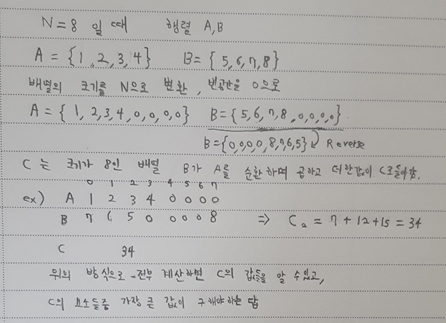 N=8 일 때 행렬 A,B
A = {1,2,3,4} B= {5,6,7,8}
배열의 크기를 N으로 변환, 빈공간을 0으로
A = {1,2,3,4,0,0,0,0} B={5,6,7,8,0,0,0,0}
B={0,0,0,0,8,7,6,5} Reverse
C 는 크기가 8인 배열 B가 A를 순환하며 곱하고 더한값이 C로들어감.
0 1 2 3 4 5 6 7
ex) A 1 2 3 4 0 0 0 0
B 7 6 5 0 0 0 0 8 ⇒ C₂ = 7+12+15=34
C 34
위의 방식으로 전부 계산하면 C의 값들을 알 수있고,
C의 요소들중 가장 큰 값이 구해야하는 답